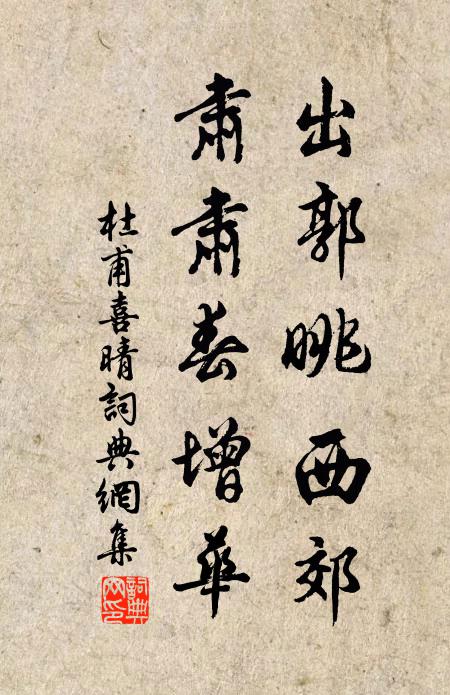 出郭眺西郊
肅肅春增華
杜甫喜晴詞典網集
詞典
网印